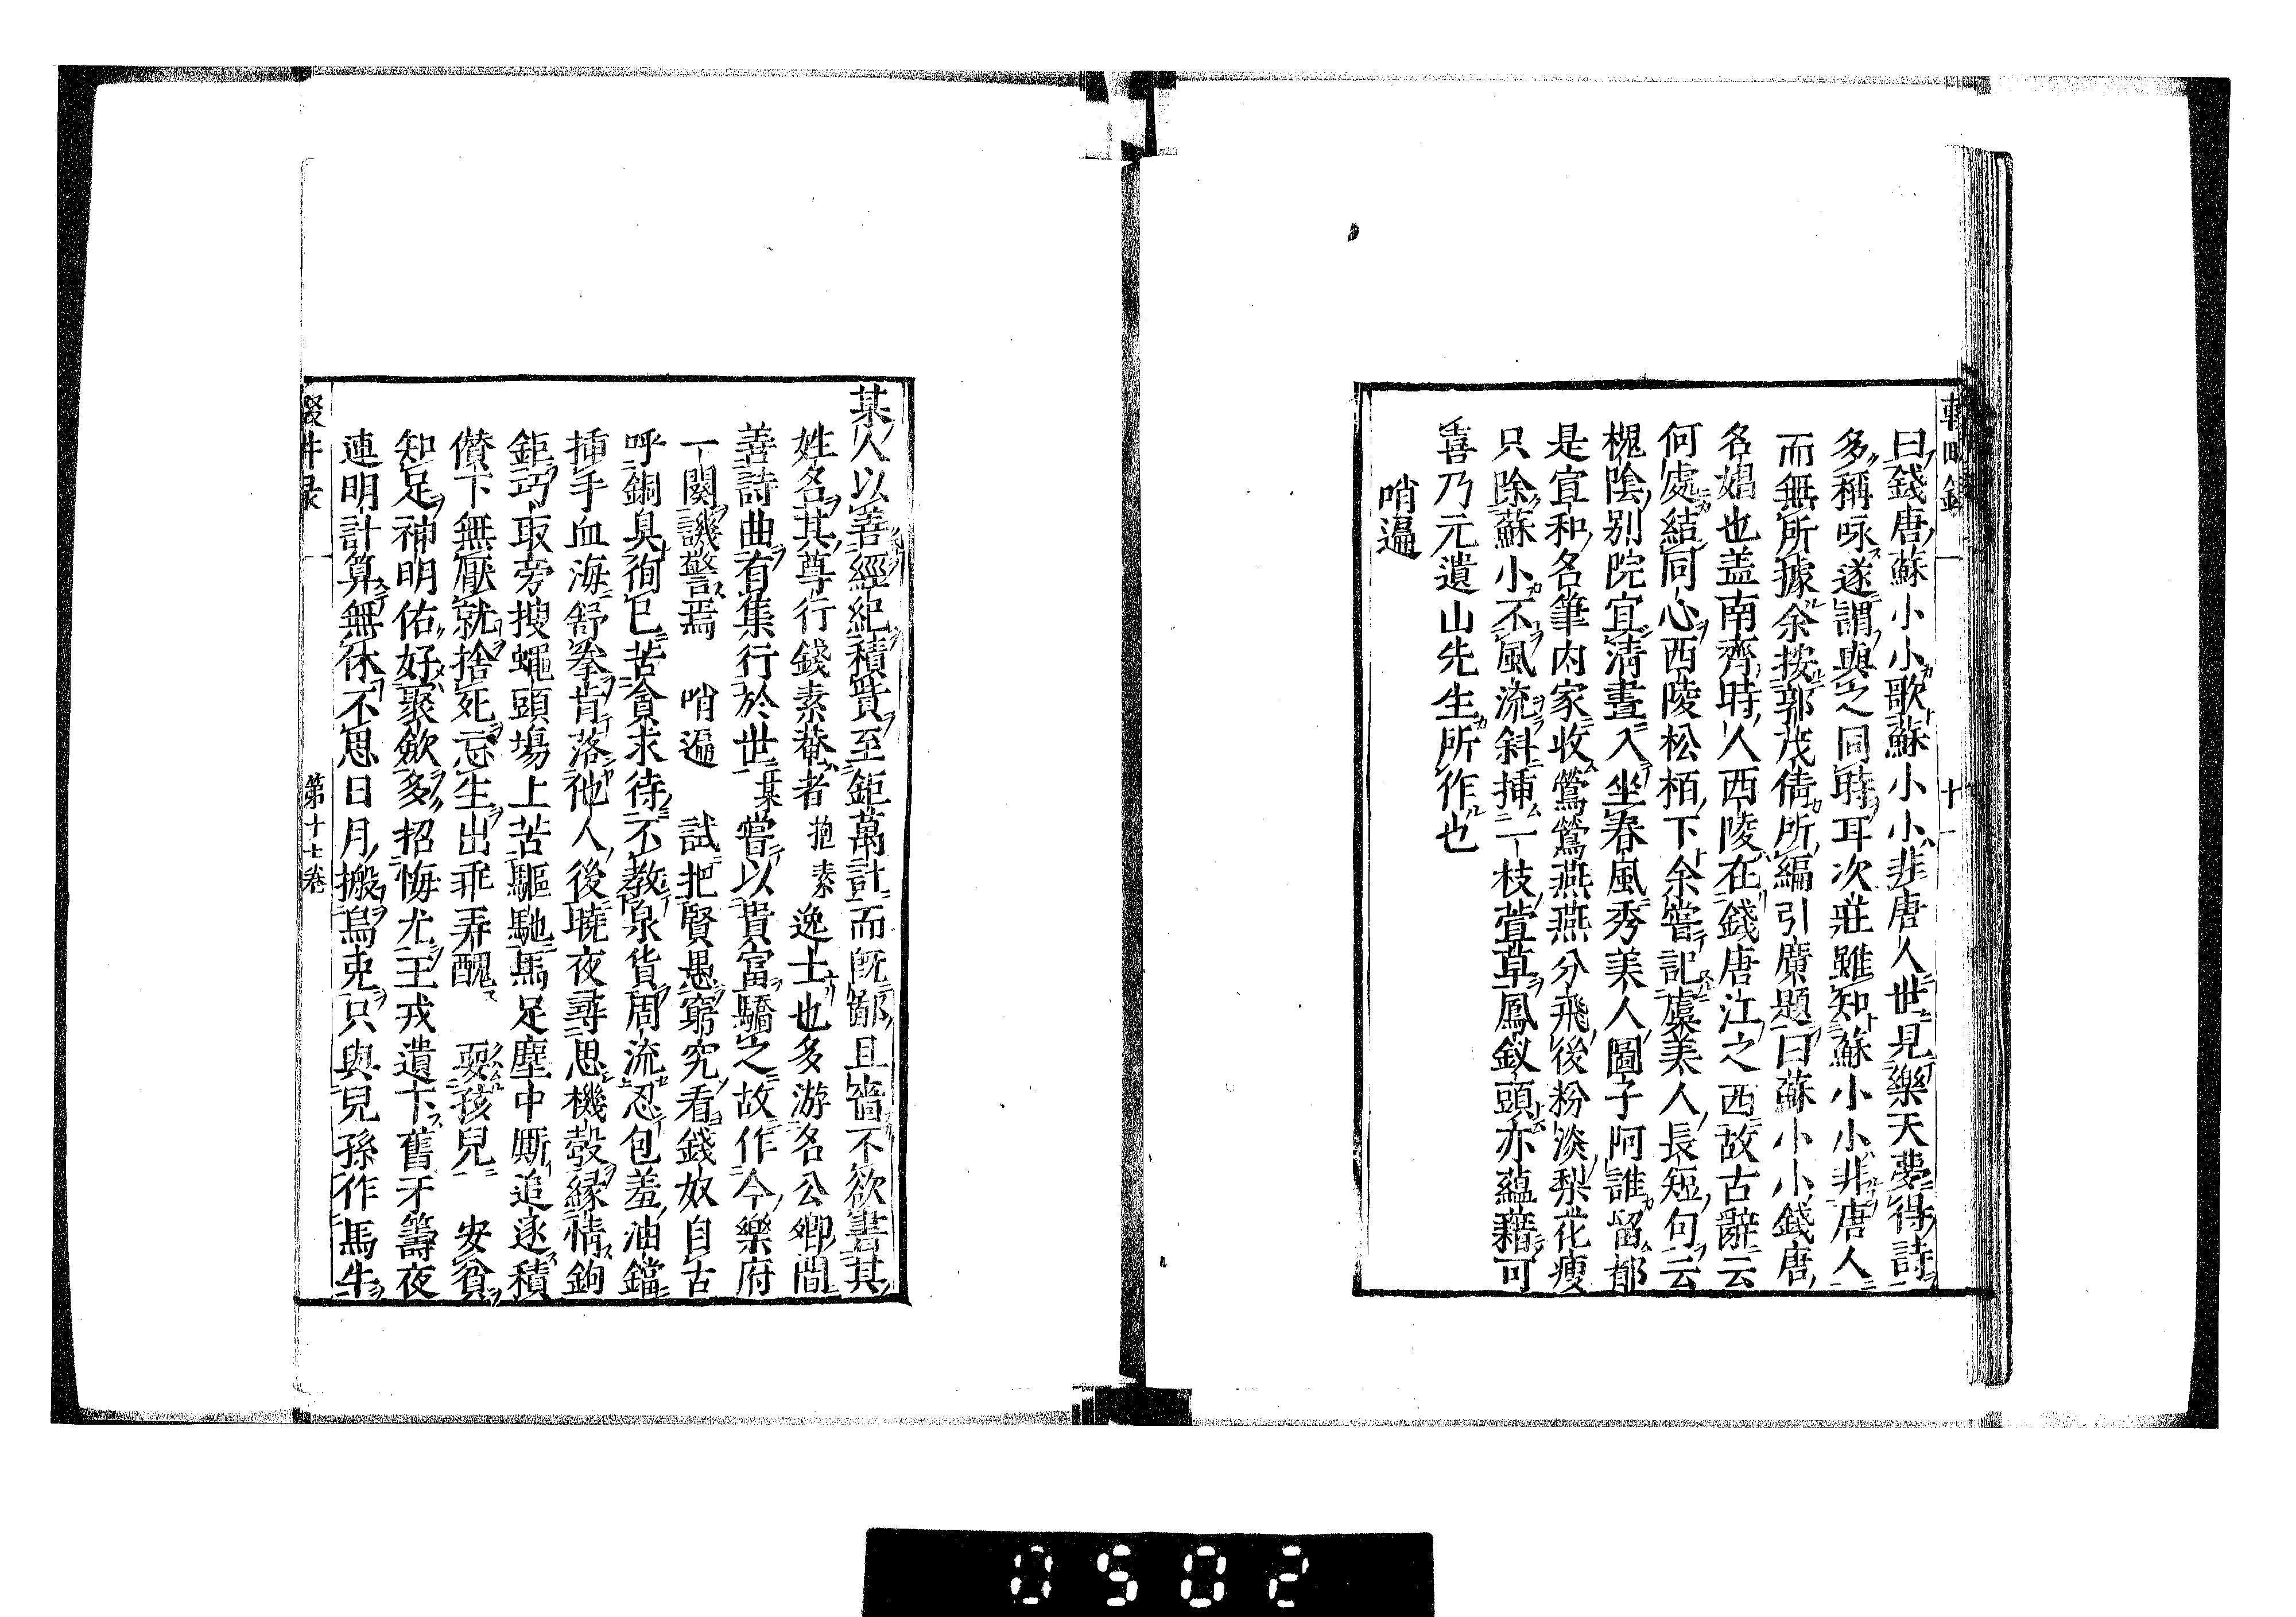 曰錢唐蘇小小歌蘇小小非唐人世見樂天夢得詩
多稱咏遂謂與之同時耳次莊雖知蘇小小非唐人
而無所據余按郭茂倩所編引廣題曰蘇小小錢唐
名娼也盖南齊時人西陵在錢唐江之西故古辭云
何處結同心西陵松栢下余嘗記虞美人長短句云
槐陰別院宜清晝入坐春風秀美人圖子阿誰留都
是宣和名筆内家收鶯鶯燕燕分飛後粉淡梨花瘦
只除蘇小不風流斜插一枝萱草鳳釵頭亦蘊藉可
喜乃元遺山先生所作也
哨遍
某人以善經紀積貲至鉅萬計而旣鄙且嗇不欲書其
姓名其尊行錢素菴者抱素逸士也多游名公卿間
善詩曲有集行於世某嘗以貴富驕之故作今樂府
一闋譏警焉　哨遍　試把賢愚窮究看錢奴自古
呼銅臭徇已苦貪求待不教泉貨周流忍包羞油鐺
插手血海舒拳肯落他人後曉夜尋思機彀緣情鉤
鉅巧取旁搜蠅頭場上苦驅馳馬足塵中厮追逐積
儹下無厭就捨死忘生出乖弄醜　耍孩兒　安貧
知足神明佑好聚斂多招悔尤王戎遺下舊牙籌夜
連明計算無休不思日月搬烏兎只與兒孫作馬牛
輟畊录
第十七卷
十一
0502